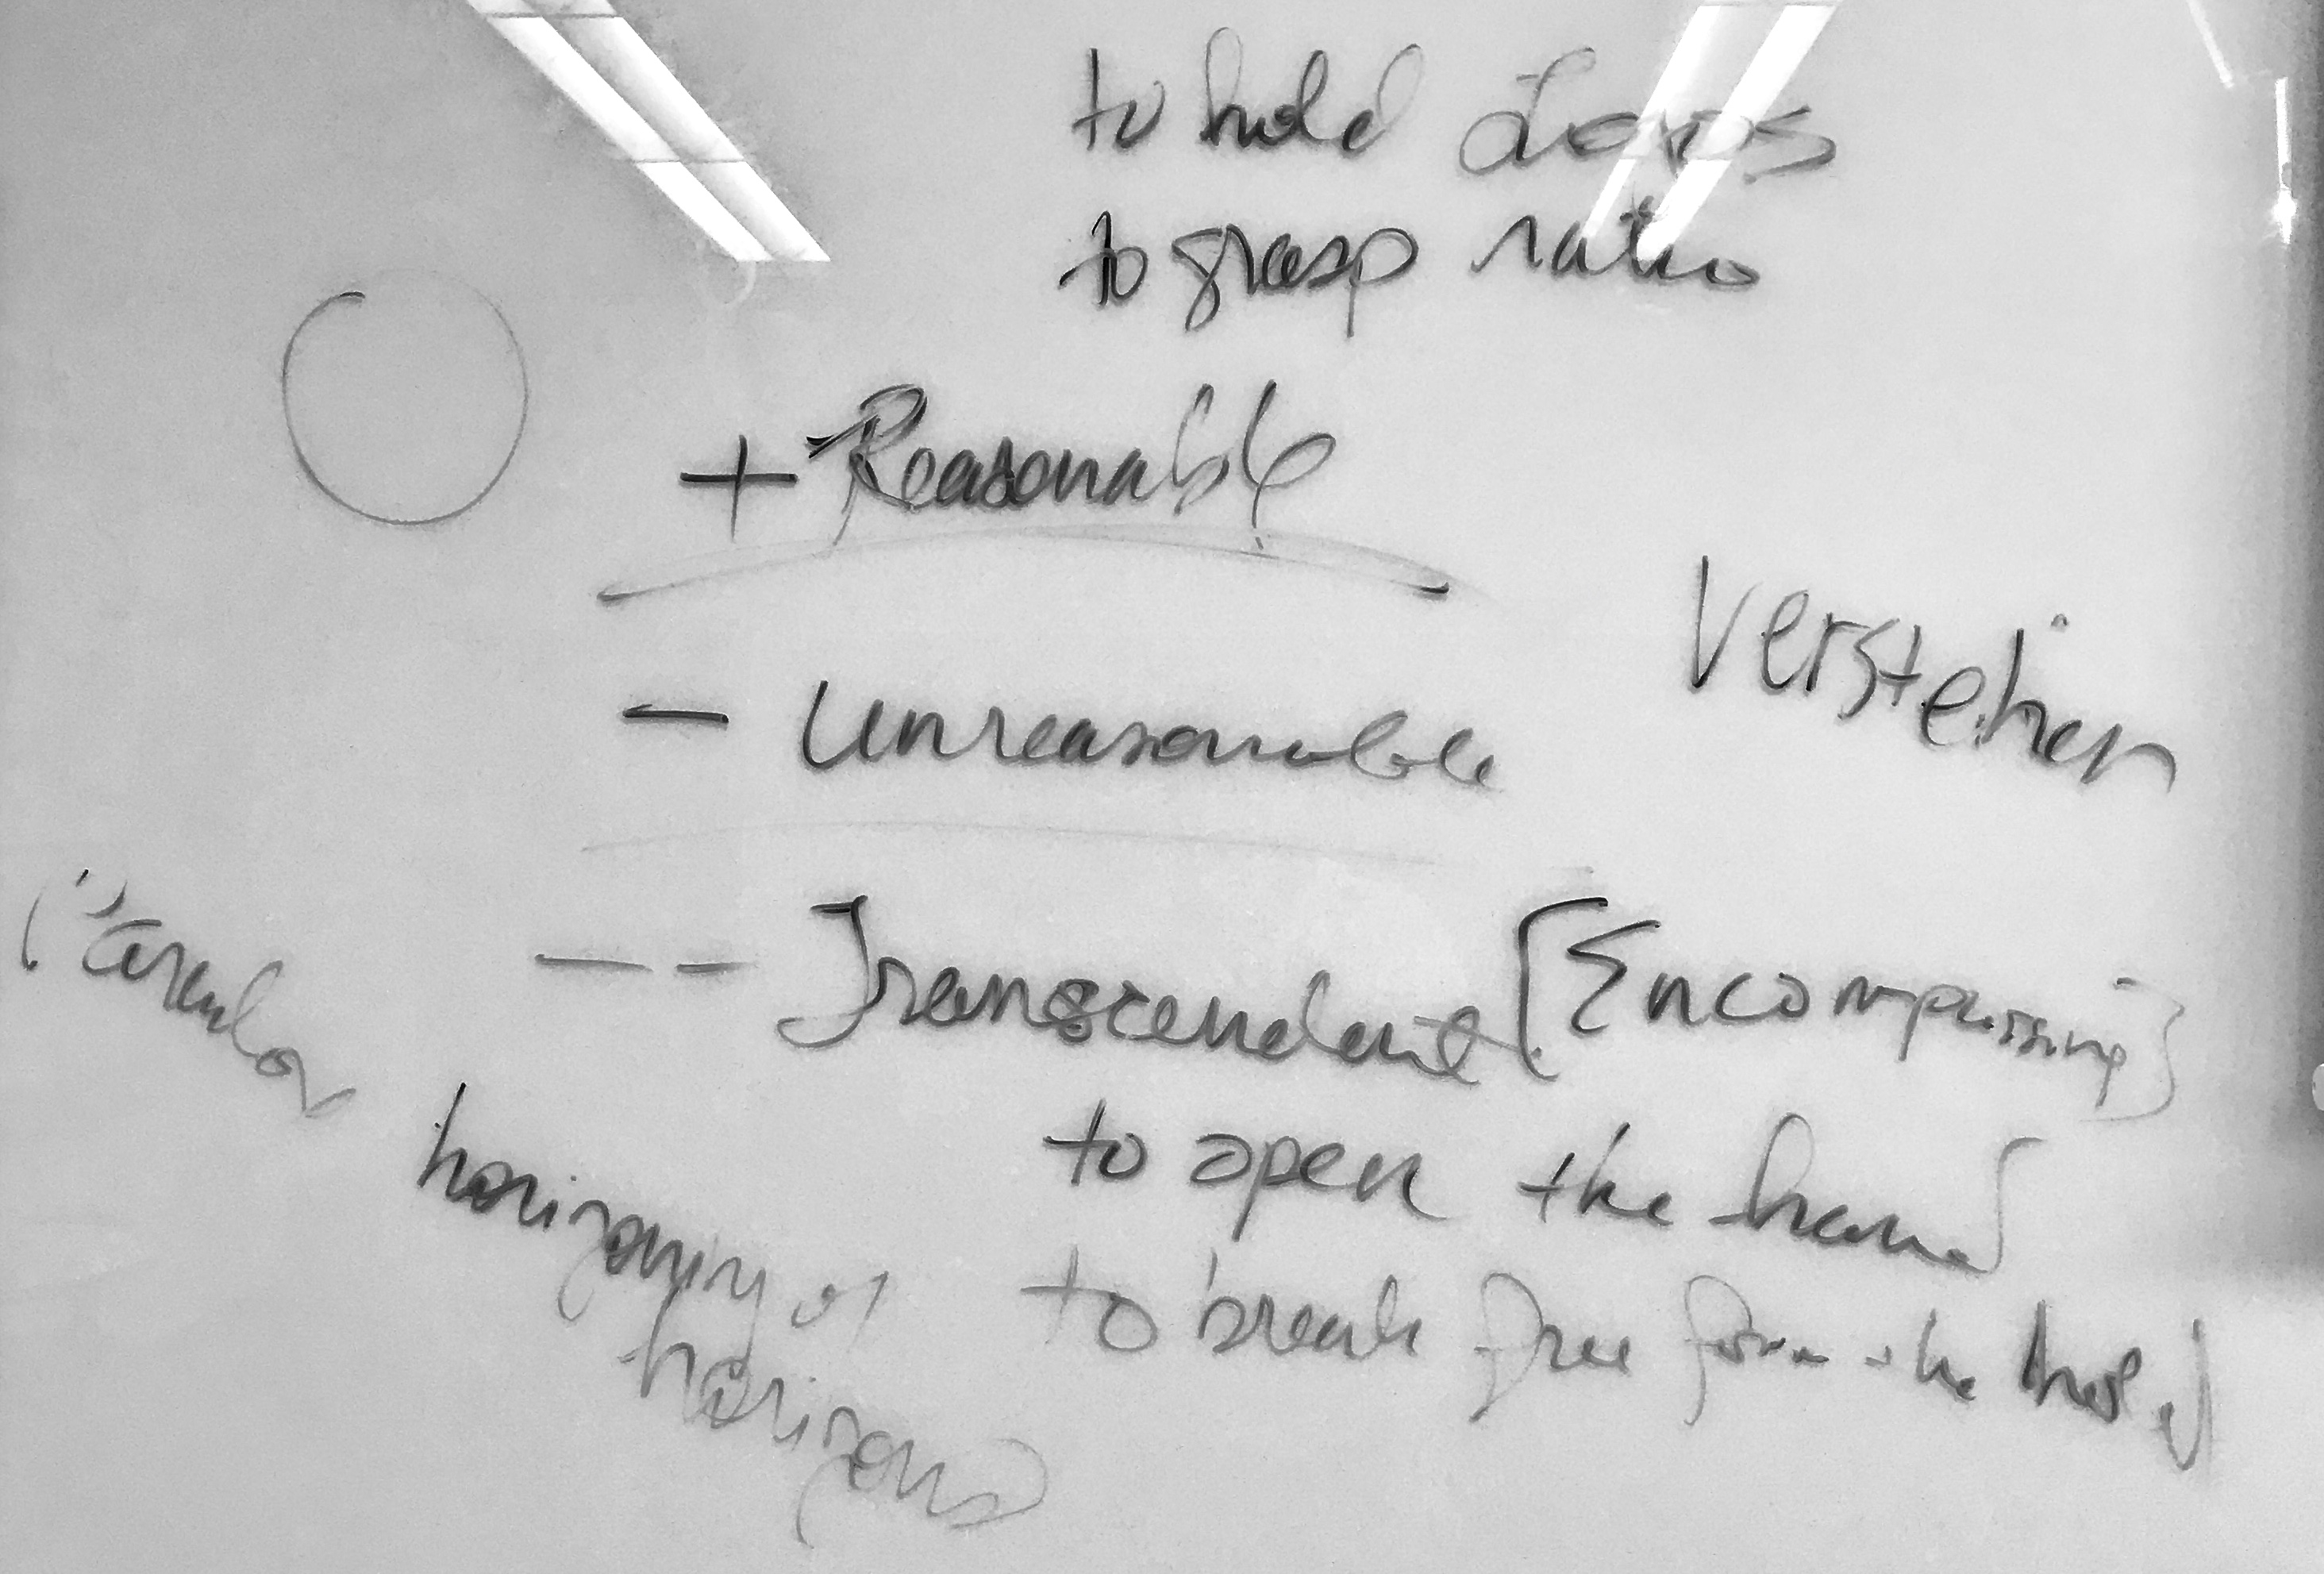 to hold Logos
to grasp ratio
+ Reasonable
- Unreasonable
Verstehen
-- Transcendent [Encompassing]
to open the hand
to break free from the hold
horizoning of
horizons